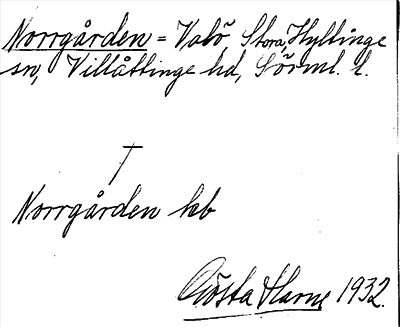 Norrgården = Valö Stora, Hyltinge
sn, Villåttinge hd, Sörml. l.
†
Norrgården kb
Gösta Harne 1932.